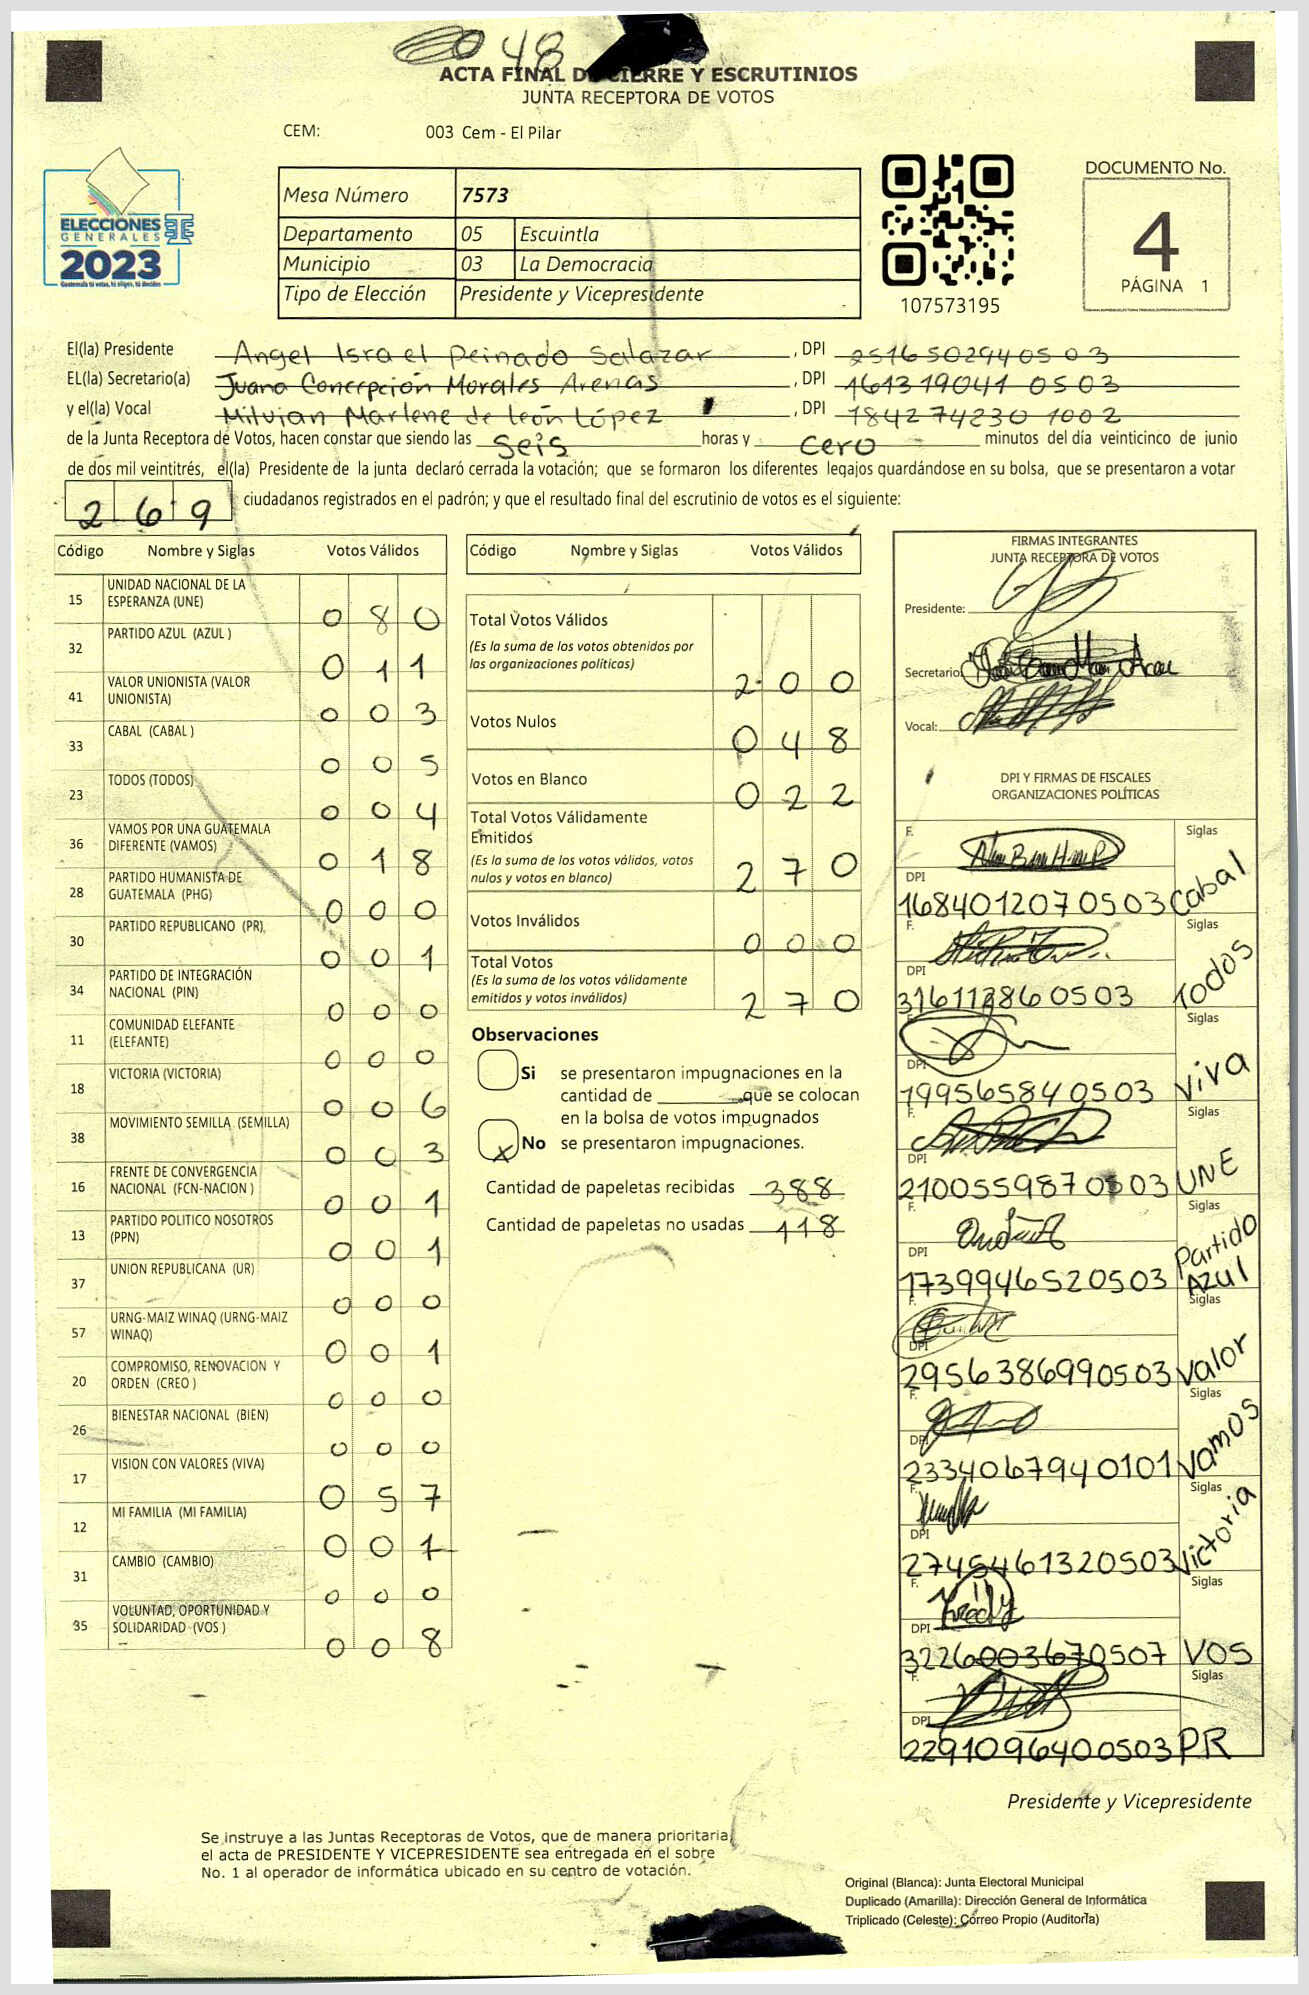 48
ACTA FINAL DE CIERRE Y ESCRUTINIOS
JUNTA RECEPTORA DE VOTOS
CEM: 003 Cem - El Pilar
ELECCIONES
GENERALES
2023
Guatemala tú votas, tú eliges, tú decides
Mesa Número 7573
Departamento 05 Escuintla
Municipio 03 La Democracia
Tipo de Elección Presidente y Vicepresidente
107573195
DOCUMENTO No.
4
PÁGINA 1
El(la) Presidente Angel Israel Peinado Salazar, DPI 2516502940503
EL(la) Secretario(a) Juana Concepción Morales Arenas, DPI 1613190410503
y el(la) Vocal Milvian Marlene de león López, DPI 1842742301002
de la Junta Receptora de Votos, hacen constar que siendo las Seis horas y cero minutos del día veinticinco de junio
de dos mil veintitrés, el(la) Presidente de la junta declaró cerrada la votación; que se formaron los diferentes legajos quardándose en su bolsa, que se presentaron a votar
269 ciudadanos registrados en el padrón; y que el resultado final del escrutinio de votos es el siguiente:
Código Nombre y Siglas Votos Válidos
15 UNIDAD NACIONAL DE LA ESPERANZA (UNE) 080
32 PARTIDO AZUL (AZUL ) 011
41 VALOR UNIONISTA (VALOR UNIONISTA) 003
33 CABAL (CABAL ) 005
23 TODOS (TODOS) 004
36 VAMOS POR UNA GUATEMALA DIFERENTE (VAMOS) 018
28 PARTIDO HUMANISTA DE GUATEMALA (PHG) 000
30 PARTIDO REPUBLICANO (PR) 001
34 PARTIDO DE INTEGRACIÓN NACIONAL (PIN) 000
11 COMUNIDAD ELEFANTE (ELEFANTE) 000
18 VICTORIA (VICTORIA) 006
38 MOVIMIENTO SEMILLA (SEMILLA) 003
16 FRENTE DE CONVERGENCIA NACIONAL (FCN-NACION ) 001
13 PARTIDO POLITICO NOSOTROS (PPN) 001
37 UNION REPUBLICANA (UR) 000
57 URNG-MAIZ WINAQ (URNG-MAIZ WINAQ) 001
20 COMPROMISO, RENOVACION Y ORDEN (CREO ) 000
26 BIENESTAR NACIONAL (BIEN) 000
17 VISION CON VALORES (VIVA) 057
12 MI FAMILIA (MI FAMILIA) 001
31 CAMBIO (CAMBIO) 000
35 VOLUNTAD, OPORTUNIDAD Y SOLIDARIDAD (VOS ) 008
Código Nombre y Siglas Votos Válidos
Total Votos Válidos
(Es la suma de los votos obtenidos por
las organizaciones políticas) 200
Votos Nulos 048
Votos en Blanco 022
Total Votos Válidamente
Emitidos
(Es la suma de los votos válidos, votos
nulos y votos en blanco) 270
Votos Inválidos 000
Total Votos
(Es la suma de los votos válidamente
emitidos y votos inválidos) 270
Observaciones
Si se presentaron impugnaciones en la
cantidad de ________que se colocan
en la bolsa de votos impugnados
x No se presentaron impugnaciones.
Cantidad de papeletas recibidas 388
Cantidad de papeletas no usadas 118
FIRMAS INTEGRANTES
JUNTA RECEPTORA DE VOTOS
Presidente:
Secretario:
Vocal:
DPI Y FIRMAS DE FISCALES
ORGANIZACIONES POLÍTICAS
F. Siglas
DPI
1684012070503 Cabal
F. Siglas
DPI
Todos
Siglas
DPI
199565840503 Viva
F. Siglas
DPI
UNE
F. Siglas
DPI
1739946520503 Partido Azul
F. Siglas
DPI
2956386990503 Valor
Siglas
DPI
2334067940101 Vamos
F. Siglas
DPI
2745461320503 Victoria
F. Siglas
Fredy
DPI
3226003670507 VOS
F. Siglas
DPI
2291096400503 PR
Presidente y Vicepresidente
Se instruye a las Juntas Receptoras de Votos, que de manera prioritaria,
el acta de PRESIDENTE Y VICEPRESIDENTE sea entregada en el sobre
No. 1 al operador de informática ubicado en su centro de votación.
Original (Blanca): Junta Electoral Municipal
Duplicado (Amarilla): Dirección General de Informática
Triplicado (Celeste): Correo Propio (Auditoría)